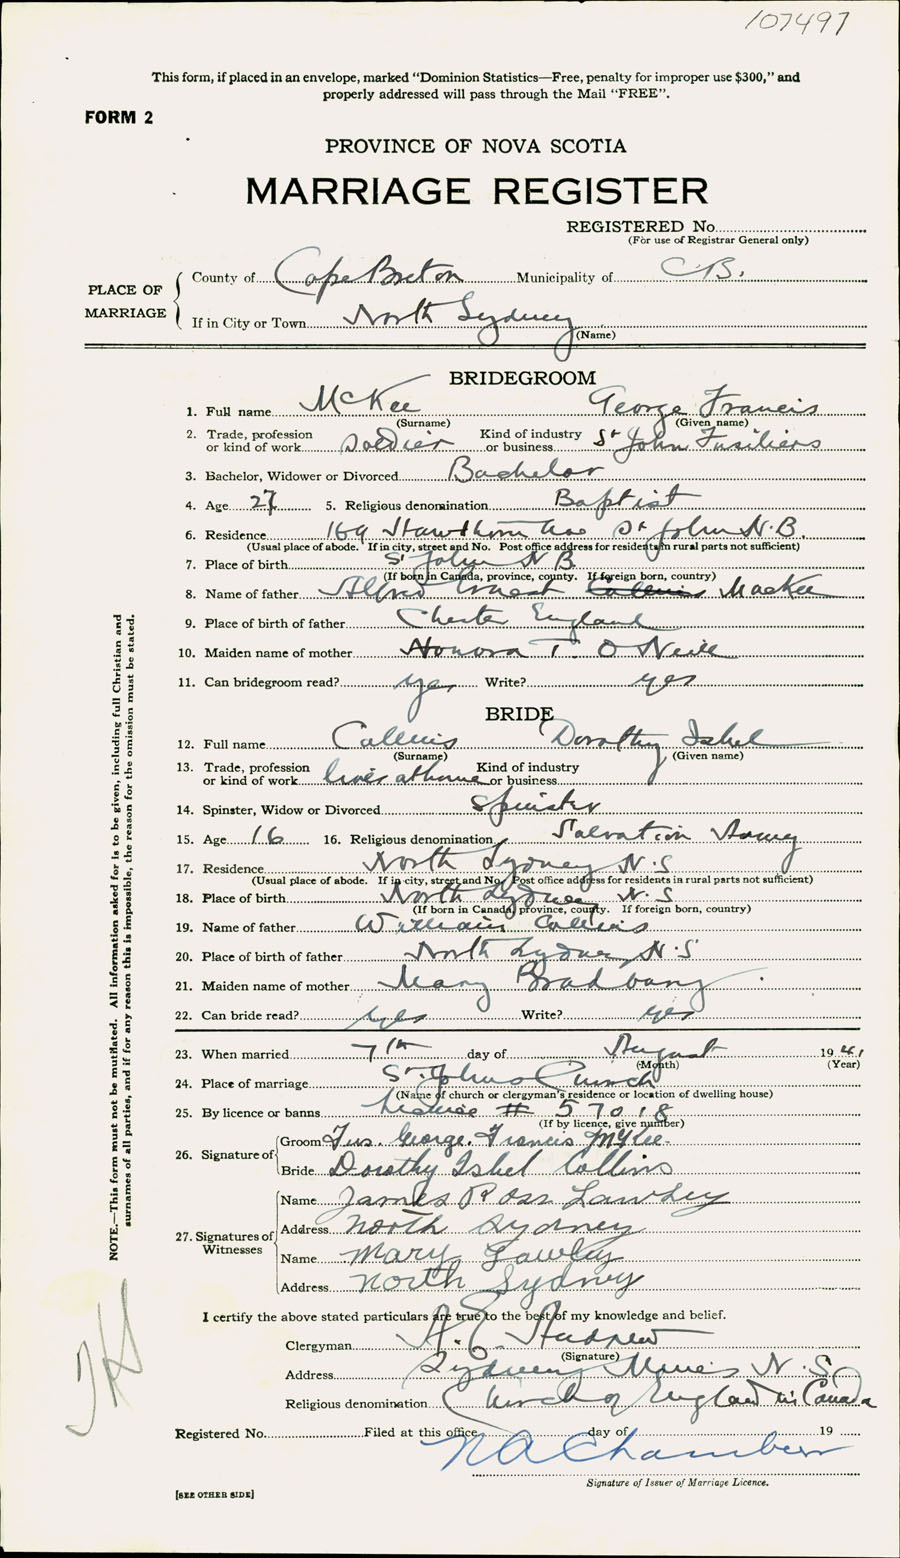 107497
This form, if placed in an envelope, marked "Dominion Statistics—Free, penalty for improper use $300," and
properly addressed will pass through the Mail "FREE".
FORM 2
PROVINCE OF NOVA SCOTIA
MARRIAGE REGISTER
REGISTERED No.
(For use of Registrar General only)
PLACE OF MARRIAGE
County of Cape Breton Municipality of C.B.
If in City or Town North Sydney
(Name)
BRIDEGROOM
1. Full name McKee George Francis
(Surname) (Given name)
2. Trade, profession or kind of work Soldier Kind of industry or business St John Fusiliers
3. Bachelor, Widower or Divorced Bachelor
4. Age 27 5. Religious denomination Baptist
6. Residence 169 Hawthorn Ave St John N.B.
(Usual place of abode. If in city, street and No. Post office address for residents in rural parts not sufficient)
7. Place of birth St John N B
(If born in Canada, province, county. If foreign born, country)
8. Name of father Alfred Ernest Collins MacKee
9. Place of birth of father Chester England
10. Maiden name of mother Honora T. O Neill
11. Can bridegroom read? yes Write? yes
BRIDE
12. Full name Collins Dorothy Isbel
(Surname) (Given name)
13. Trade, profession or kind of work lives at home Kind of industry or business
14. Spinster, Widow or Divorced Spinster
15. Age 16 16. Religious denomination Salvation Army
17. Residence North Sydney N.S
(Usual place of abode. If in city, street and No. Post office address for residents in rural parts not sufficient)
18. Place of birth North Sydney N.S
(If born in Canada, province, county. If foreign born, country)
19. Name of father William Collins
20. Place of birth of father North Sydney N.S
21. Maiden name of mother Mary
22. Can bride read? yes Write? yes
23. When married 7th day of August 1941
(Month) (Year)
24. Place of marriage St. Johns Church
(Name of church or clergyman's residence or location of dwelling house)
25. By licence or banns License # 57018
(If by licence, give number)
26. Signature of
Groom George. Francis McKee
Bride Dorothy Isbel Collins
27. Signatures of Witnesses
Name James Ross Lawley
Address North Sydney
Name Mary Lawley
Address North Sydney
I certify the above stated particulars are true to the best of my knowledge and belief.
Clergyman A. E. Andrew
(Signature)
Address Sydney Mines N.S.
Religious denomination Church of England in Canada
Registered No. Filed at this office day of 19
N A Chambers
Signature of Issuer of Marriage Licence.
[SEE OTHER SIDE]
NOTE.—This form must not be mutilated. All information asked for is to be given, including full Christian and
surnames of all parties, and if for any reason this is impossible, the reason for the omission must be stated.